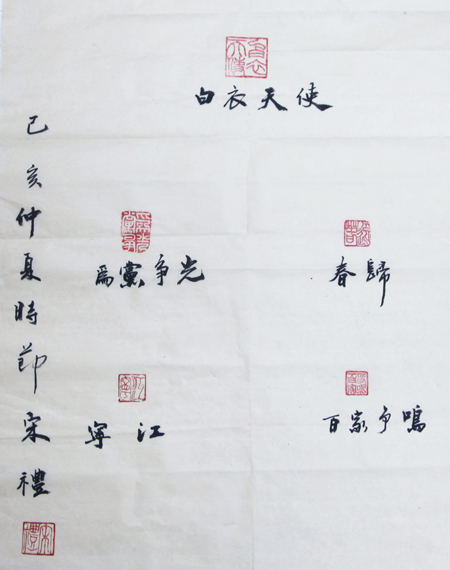 白衣天使
為黨争光
春歸
寧江
百家争鳴
己亥仲夏時節宋禮